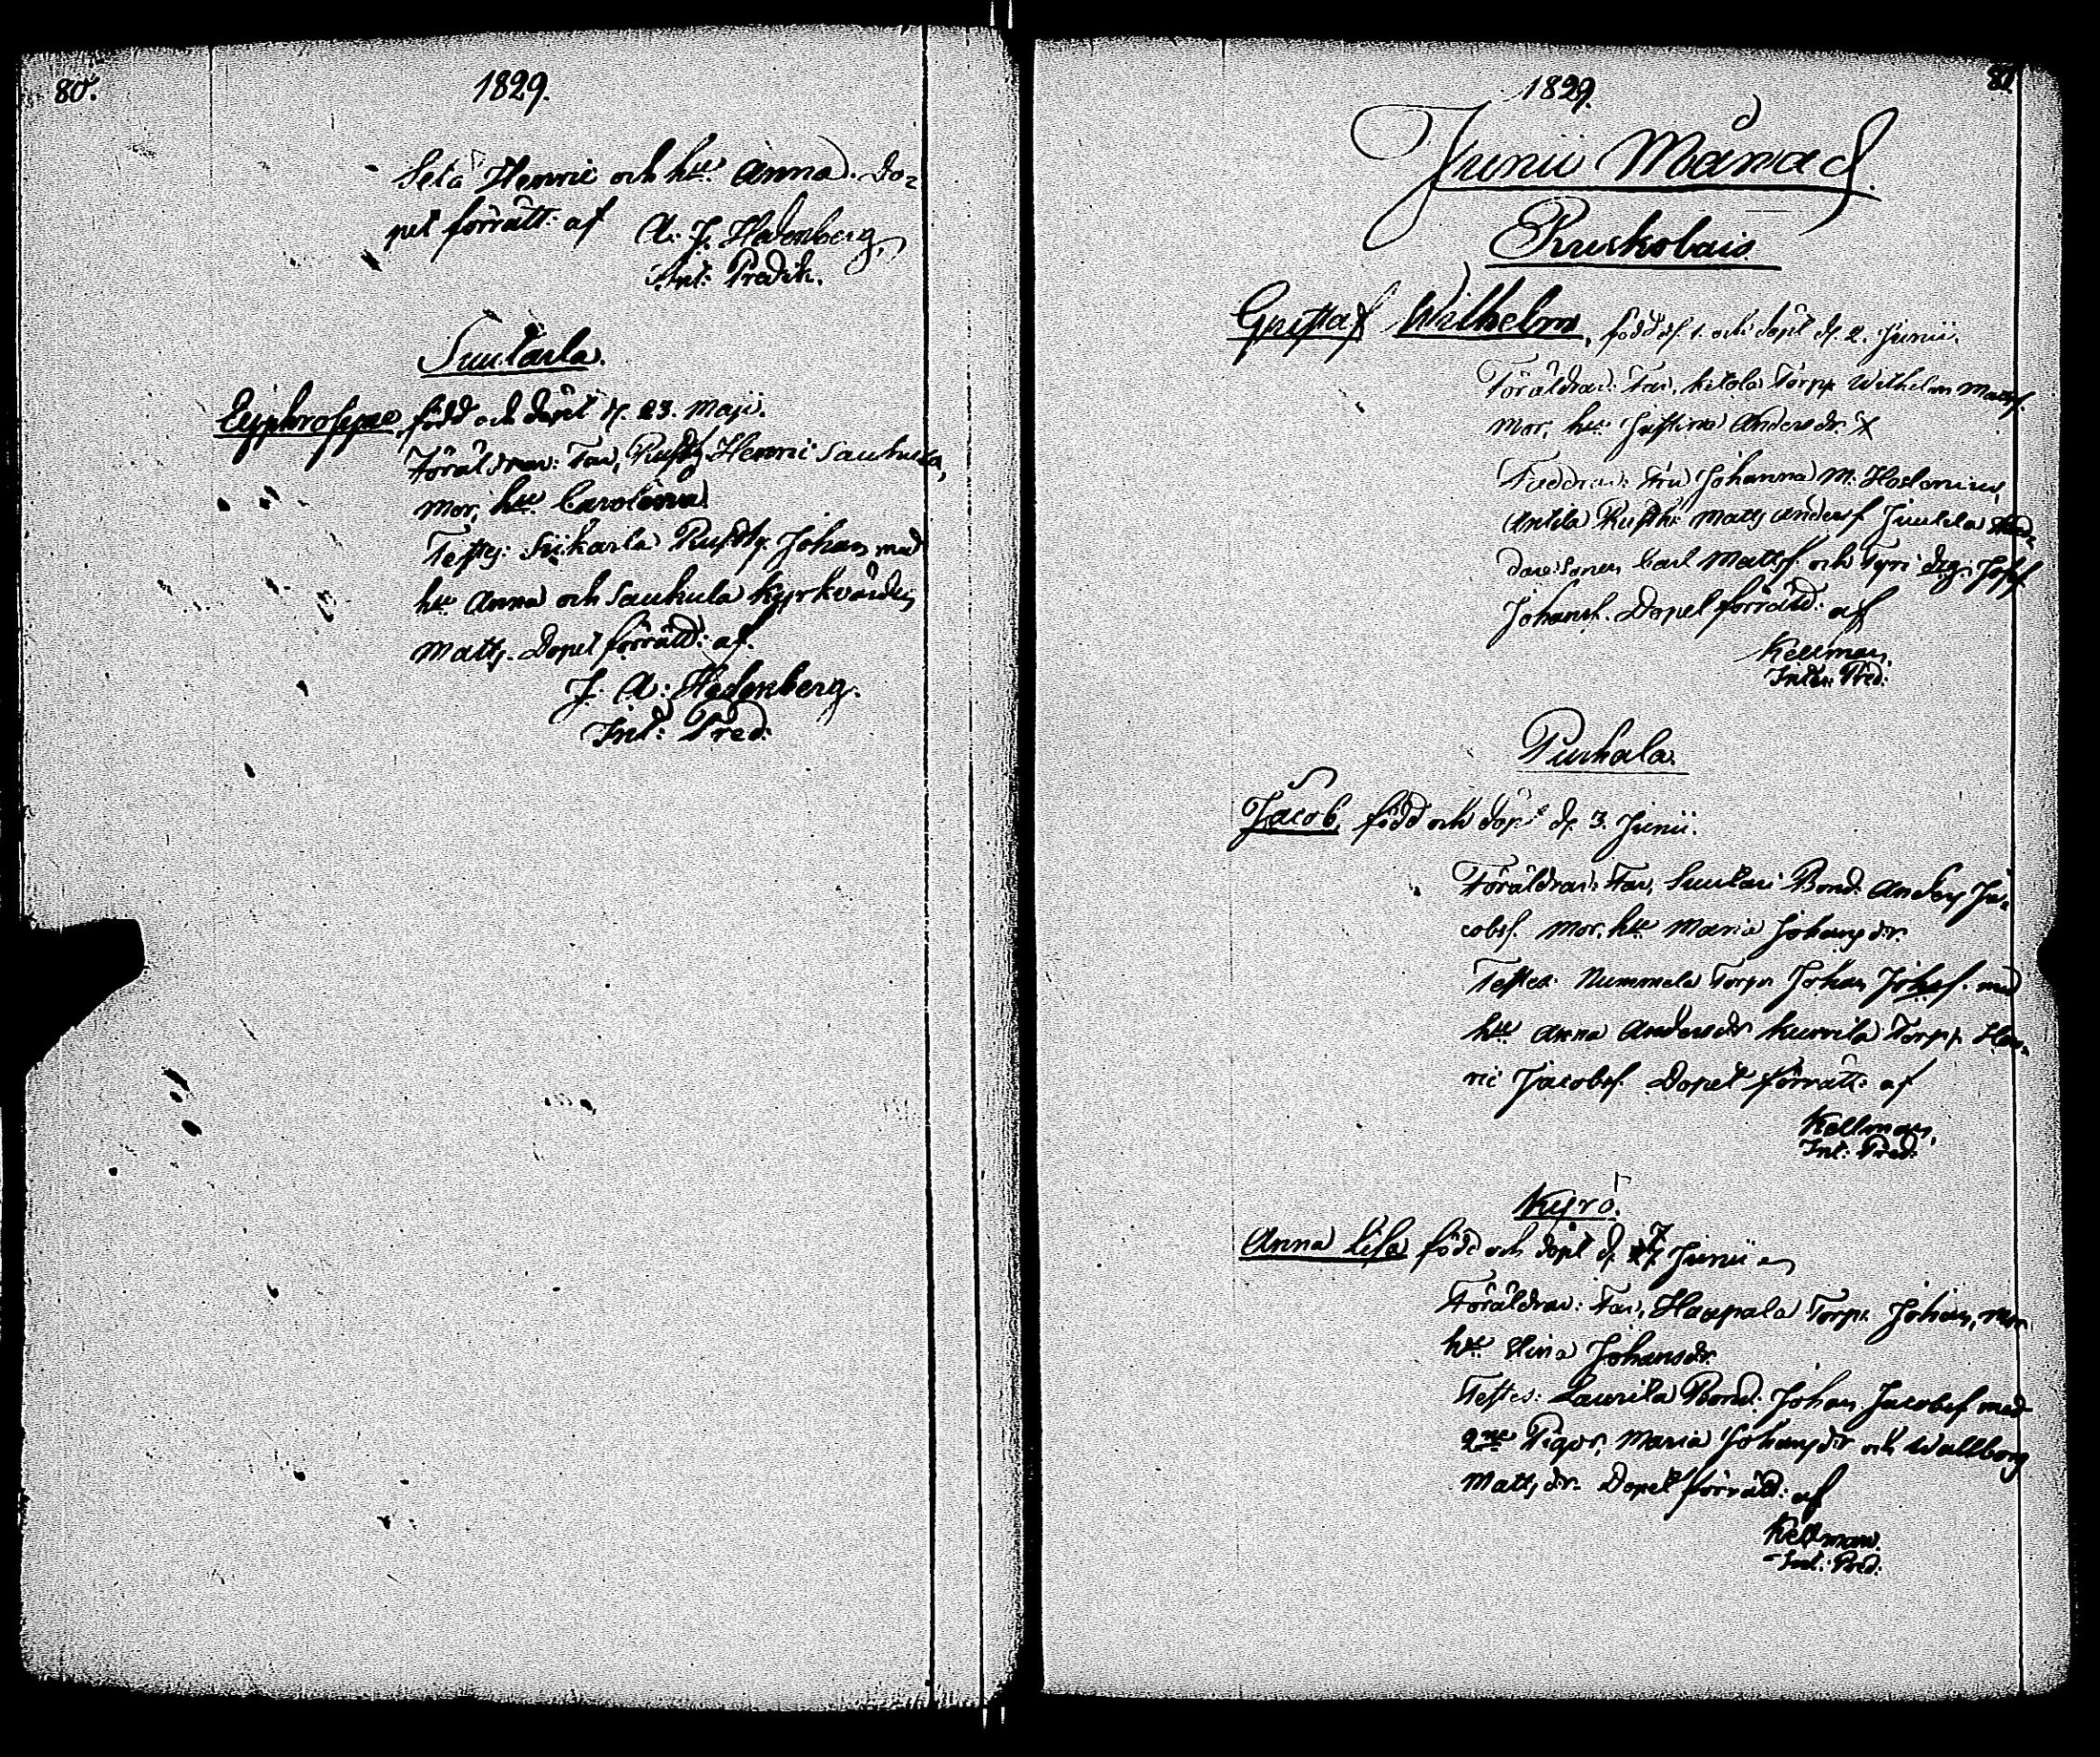 80.
1829.
Seta Henric och hu. Anna. Do-
pet förrätt: af A. J. Hedenberg,
Int: Predik.
Suutarla.
Euphrosyne, född och döpt d. 23. Maji.
Föräldrar: Far, Rusth. Henric Sauhula,
Mor, hu. Carolina.
Testes: Sukarla Rusth. Johan med
hu Anna och Sauhula Kyrkvärden
Matts. Dopet förrätt: af.
J. A: Hedenberg.
Int: Pred:
81.
1829.
Junii Månad.
Ruskolais
Gustaf Wilhelm, född d. 1. och döpt d. 2. Junii.
Föräldrar: Far, Kitola Torpp Wilhelm Mattss.
Mor, hu. Justina Andersdr.
Faddrar: Fru Johanna M:
Antila Rusth: Matts Anderss Juulila
Sonen Carl Mattss och Tyri drg. Josef
Johanss. Dopet förrätd: af
Kellman,
Inter: Pred:
Purhala.
Jacob, född och döpt d. 3. Junii.
Föräldrar: Far, Suutari Bond. Anders Ja-
cobss. Mor, hu Maria Johansdr.
Testes: Nummela Torpr Johan Johss. med
hu Anna Andersdr Kurvila Torpp Hen-
ric Jacobss. Dopet förrätt: af
Kellman,
Int: Pred:
Kyrö.
Anna Lisa född och döpt d. 7 Junii
Föräldrar: Far, Haapala Torpr. Johan, Mor
hu. Stina Johansdr.
Testes: Laurila Bond. Johan Jacobss med
2ne Pigor, Maria Johansdr och Wallborg
Mattsdr. Dopet förrätd: af
Kellman.
Int: Pred: